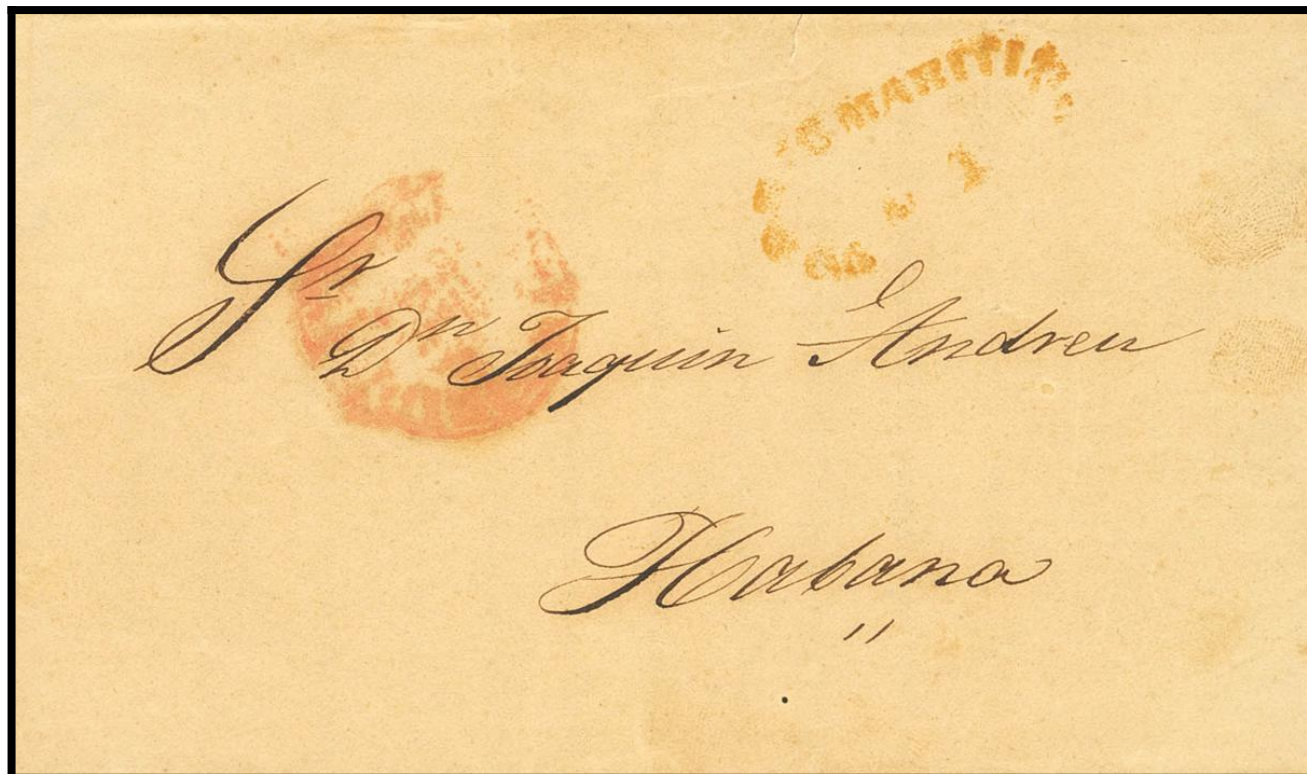 MARITIM
1
Sr
Dn Joaquin Andreu
Habana
"